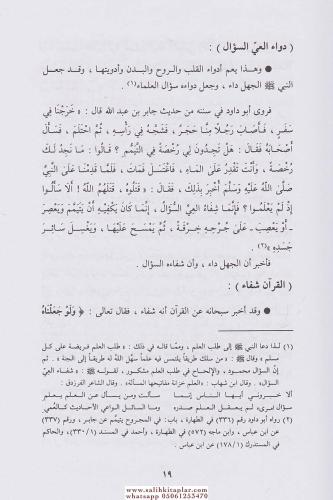 ( دواء العيّ السؤال ) :
● وهذا يعم أدواء القلب والروح والبدن وأدويتها ، وقد جعل
النبي ﷺ الجهل داء ، وجعل دواءه سؤال العلماء(١) .
فروى أبو داود في سننه من حديث جابر بن عبد الله قال : « خَرَجْنَا فِي
سَفَرٍ ، فَأَصَابَ رَجُلًا مِنَّا حَجَرٌ ، فَشَجَّهُ فِي رَأْسِهِ ، ثُمَّ احْتَلَمَ ، فَسَأَلَ
أَصْحَابَهُ فَقَالَ : هَلْ تَجِدُونَ لِي رُخْصَةً فِي التَّيَمُّمِ ؟ قَالُوا : مَا نَجِدُ لَكَ
رُخْصَةً ، وَأَنْتَ تَقْدِرُ عَلَى المَاءِ ، فَاغْتَسَلَ فَمَاتَ ، فَلَمَّا قَدِمْنَا عَلَى النَّبِيِّ
صَلَّى اللهُ عَلَيْهِ وَسَلَّمَ أُخْبِرَ بِذَلِكَ ، فَقَالَ : « قَتَلُوهُ ، قَتَلَهُمُ اللَّهُ ! أَلَا سَأَلُوا
إِذْ لَمْ يَعْلَمُوا ؟ فَإِنَّمَا شِفَاءُ العِيِّ السُّؤَالُ ، إِنَّمَا كَانَ يَكْفِيهِ أَنْ يَتَيَمَّمَ وَيَعْصِرَ
- أَوْ يَعْصِبَ - عَلَى جُرْحِهِ خِرْقَةً ، ثُمَّ يَمْسَحَ عَلَيْهَا ، وَيَغْسِلَ سَائِرَ
جَسَدِهِ »(٢) .
فأخبر أن الجهل داء ، وأن شفاءه السؤال .
( القرآن شفاء ) :
● وقد أخبر سبحانه عن القرآن أنه شفاء ، فقال تعالى : ﴿ وَلَوْ جَعَلْنَاهُ
(١) لذا دعا النبي ﷺ إلى طلب العلم ، وممّا قاله في ذلك : « طلب العلم فريضة على كل
مسلم » وقال ﷺ : « من سلك طريقًا يلتمس فيه علماً سهّل الله له طريقاً إلى الجنة » . ثم
إنّ السؤال محمود ، والإلحاح في طلب العلم مشكور ، لقوله ﷺ : « شفاء العيّ
السؤال » . وقال ابن شهاب : « العلم خزانة مفاتيحها المسألة » . وقال الشاعر الفرزدق :
ألا خبروني أيها الناس إنما سألت ومن يسأل عن العلم يعلم
سؤال امرىء لم يغفل العلم صدره وما السائل الواعي الأحاديث كالعمي
(٢) رواه أبو داود رقم (٣٣٦) في الطهارة ، باب : في المجروح يتيمم ، ورقم (٣٣٧)
عن ابن عباس ، وابن ماجه (٥٧٢) في الطهارة ، وأحمد في المسند (١/ ٣٣٠) ، والحاكم
في المستدرك (١/ ١٧٨) عن ابن عباس .
١٩
www.salihkitaplar.com
whatsapp 05061253470